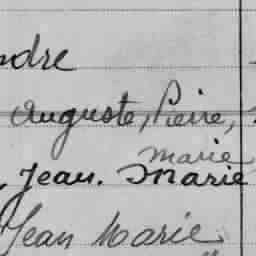 ndre
Auguste, Pierre,
marie
, Jean. Marie
Jean Marie